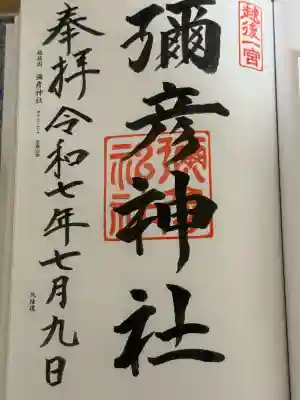 越後一宮
彌彦神社
奉拝令和七年七月九日
越後国 彌彦神社
北陸道